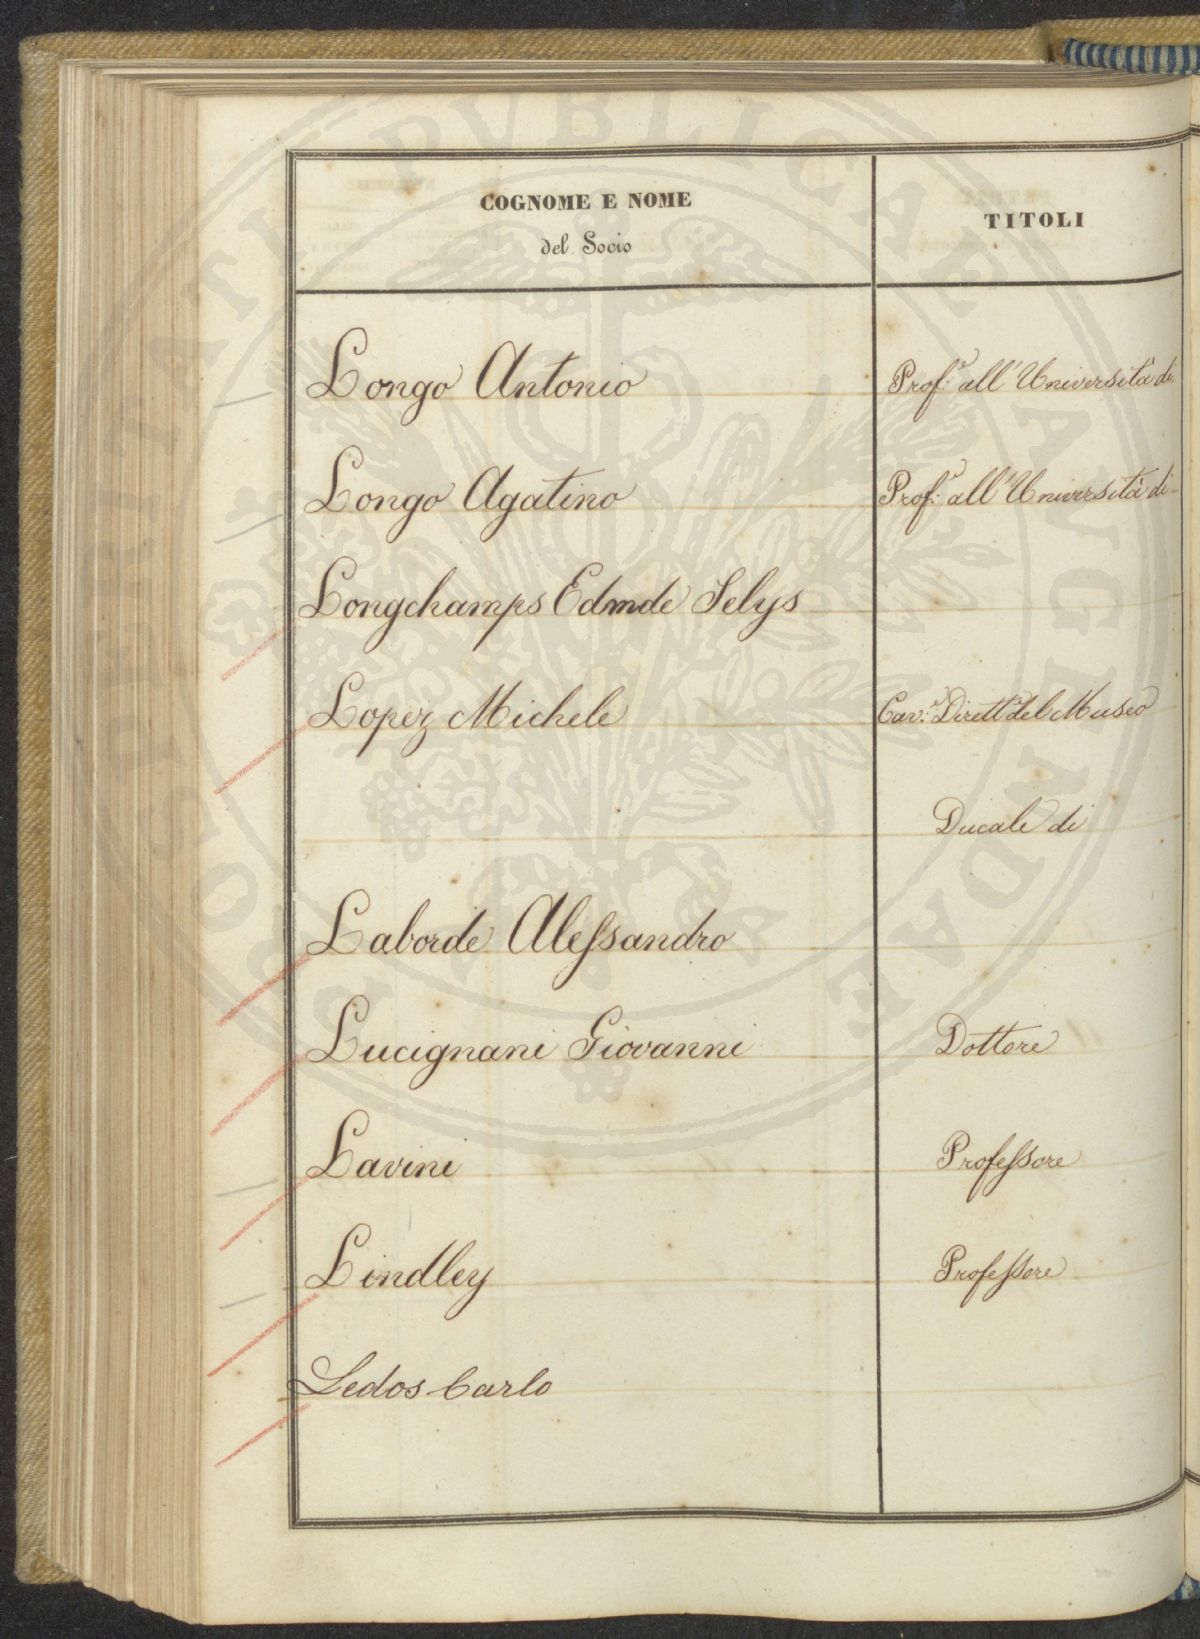 COGNOME E NOME
del Socio
TITOLI
Longo Antonio
Prof.r all'Università di
Longo Agatino
Prof.r all'Università di
Longchamps Edmde Selys
Lopez Michele
Cav.r Dirett.r del Museo
Ducale di
Laborde Alessandro
Lucignani Giovanni
Dottore
Lavini
Professore
Lindley
Professore
Ledos Carlo
PROSPERITATI PVBLICAE AVGENDAE